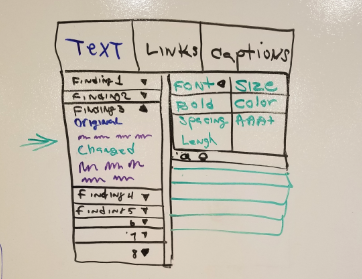 Text Links Captions
Finding 1
Finding 2
Finding 3
Original
Changed
Finding 4
Finding 5
6
7
8
Font Size
Bold Color
Spacing AAA+
Lengh
a